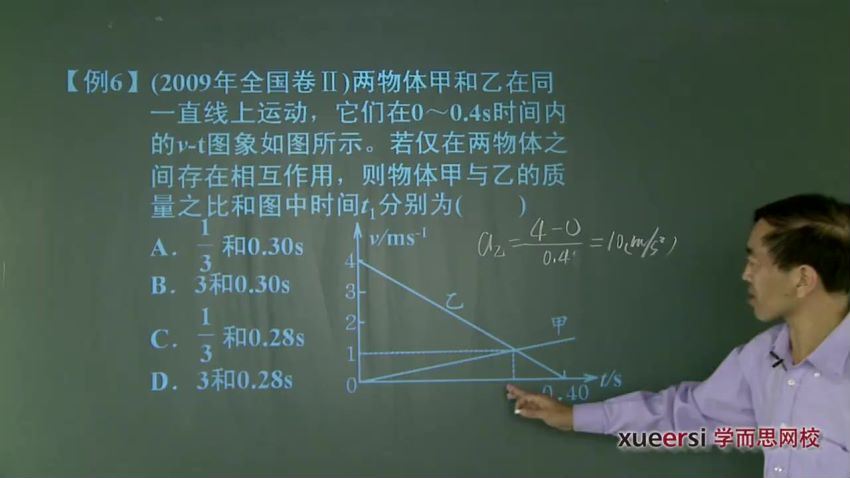 【例6】(2009年全国卷Ⅱ)两物体甲和乙在同
一直线上运动，它们在0～0.4s时间内
的v-t图象如图所示。若仅在两物体之
间存在相互作用，则物体甲与乙的质
量之比和图中时间t₁分别为(　　)
A．1/3 和0.30s
B．3和0.30s
C．1/3 和0.28s
D．3和0.28s
v/ms⁻¹
4
3
2
1
0
乙
甲
0.40
t/s
a乙=(4-0)/0.4=10(m/s²)
xueersi 学而思网校